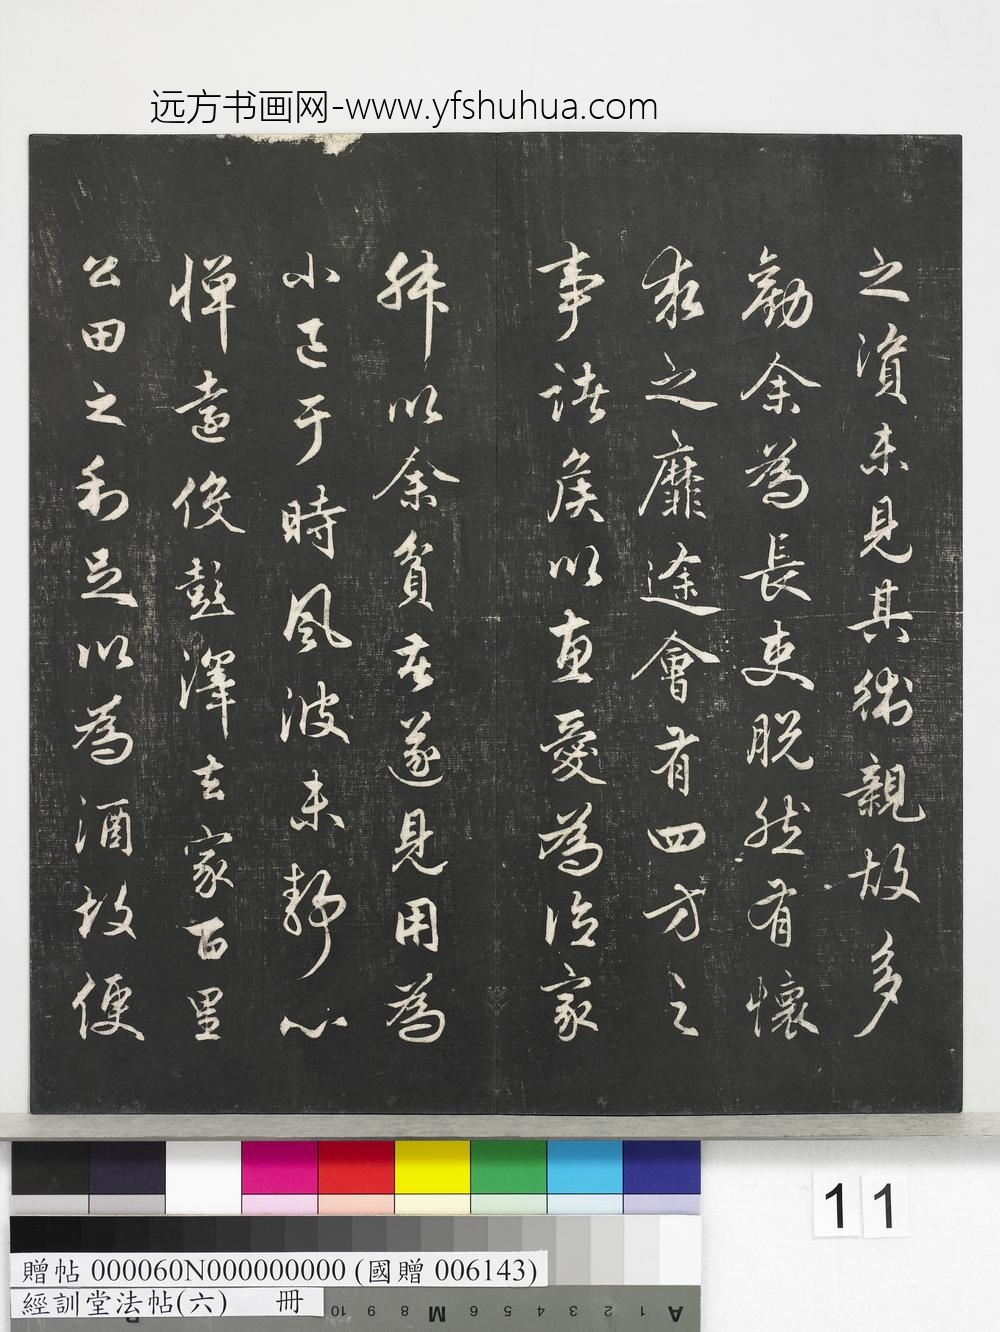 远方书画网-www.yfshuhua.com
之資未見其術親故多
勸余為長吏脫然有懷
求之靡途會有四方之
事諸侯以惠愛為德家
叔以余貧苦遂見用為
小邑于時風波未靜心
憚遠役彭澤去家百里
公田之利足以為酒故便
11
贈帖 000060N000000000 (國贈 006143)
經訓堂法帖(六) 冊
A 1 2 3 4 5 6 M 8 9 10